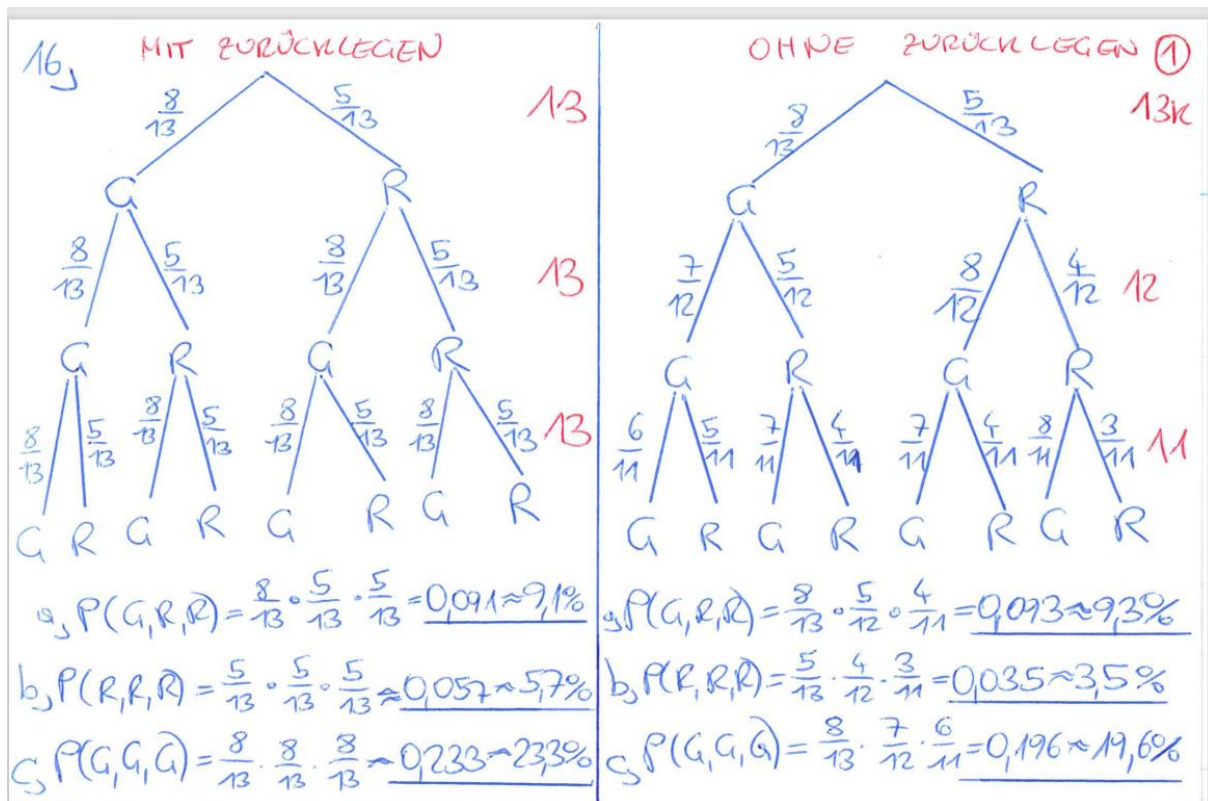 16,
MIT ZURÜCKLEGEN
8/13 5/13 13
G R
8/13 5/13 8/13 5/13 13
G R G R
8/13 5/13 8/13 5/13 8/13 5/13 8/13 5/13 13
G R G R G R G R
a, P(G,R,R) = 8/13 · 5/13 · 5/13 = 0,091 ≈ 9,1%
b, P(R,R,R) = 5/13 · 5/13 · 5/13 ≈ 0,057 ≈ 5,7%
c, P(G,G,G) = 8/13 · 8/13 · 8/13 ≈ 0,233 ≈ 23,3%
OHNE ZURÜCKLEGEN ①
8/13 5/13 13K
G R
7/12 5/12 8/12 4/12 12
G R G R
6/11 5/11 7/11 4/11 7/11 4/11 8/11 3/11 11
G R G R G R G R
a, P(G,R,R) = 8/13 · 5/12 · 4/11 = 0,093 ≈ 9,3%
b, P(R,R,R) = 5/13 · 4/12 · 3/11 = 0,035 ≈ 3,5%
c, P(G,G,G) = 8/13 · 7/12 · 6/11 = 0,196 ≈ 19,6%